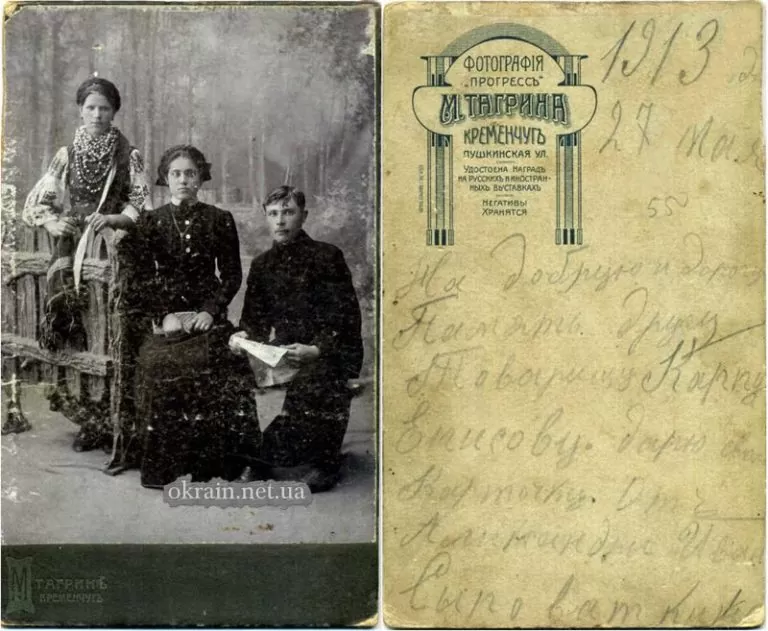 okrain.net.ua
М ТАГРИНЪ
КРЕМЕНЧУГЪ
ФОТОГРАФІЯ
„ПРОГРЕССЪ“
М. ТАГРИНА
КРЕМЕНЧУГЪ
ПУШКИНСКАЯ УЛ.
УДОСТОЕНА НАГРАДЪ
НА РУССКИХЪ И ИНОСТРАН-
НЫХЪ ВЫСТАВКАХЪ
НЕГАТИВЫ
ХРАНЯТСЯ
1913
27 Мая
55
На добрую и
Память другу
Товарищу Карпу
Енисову. дарю
Карточку